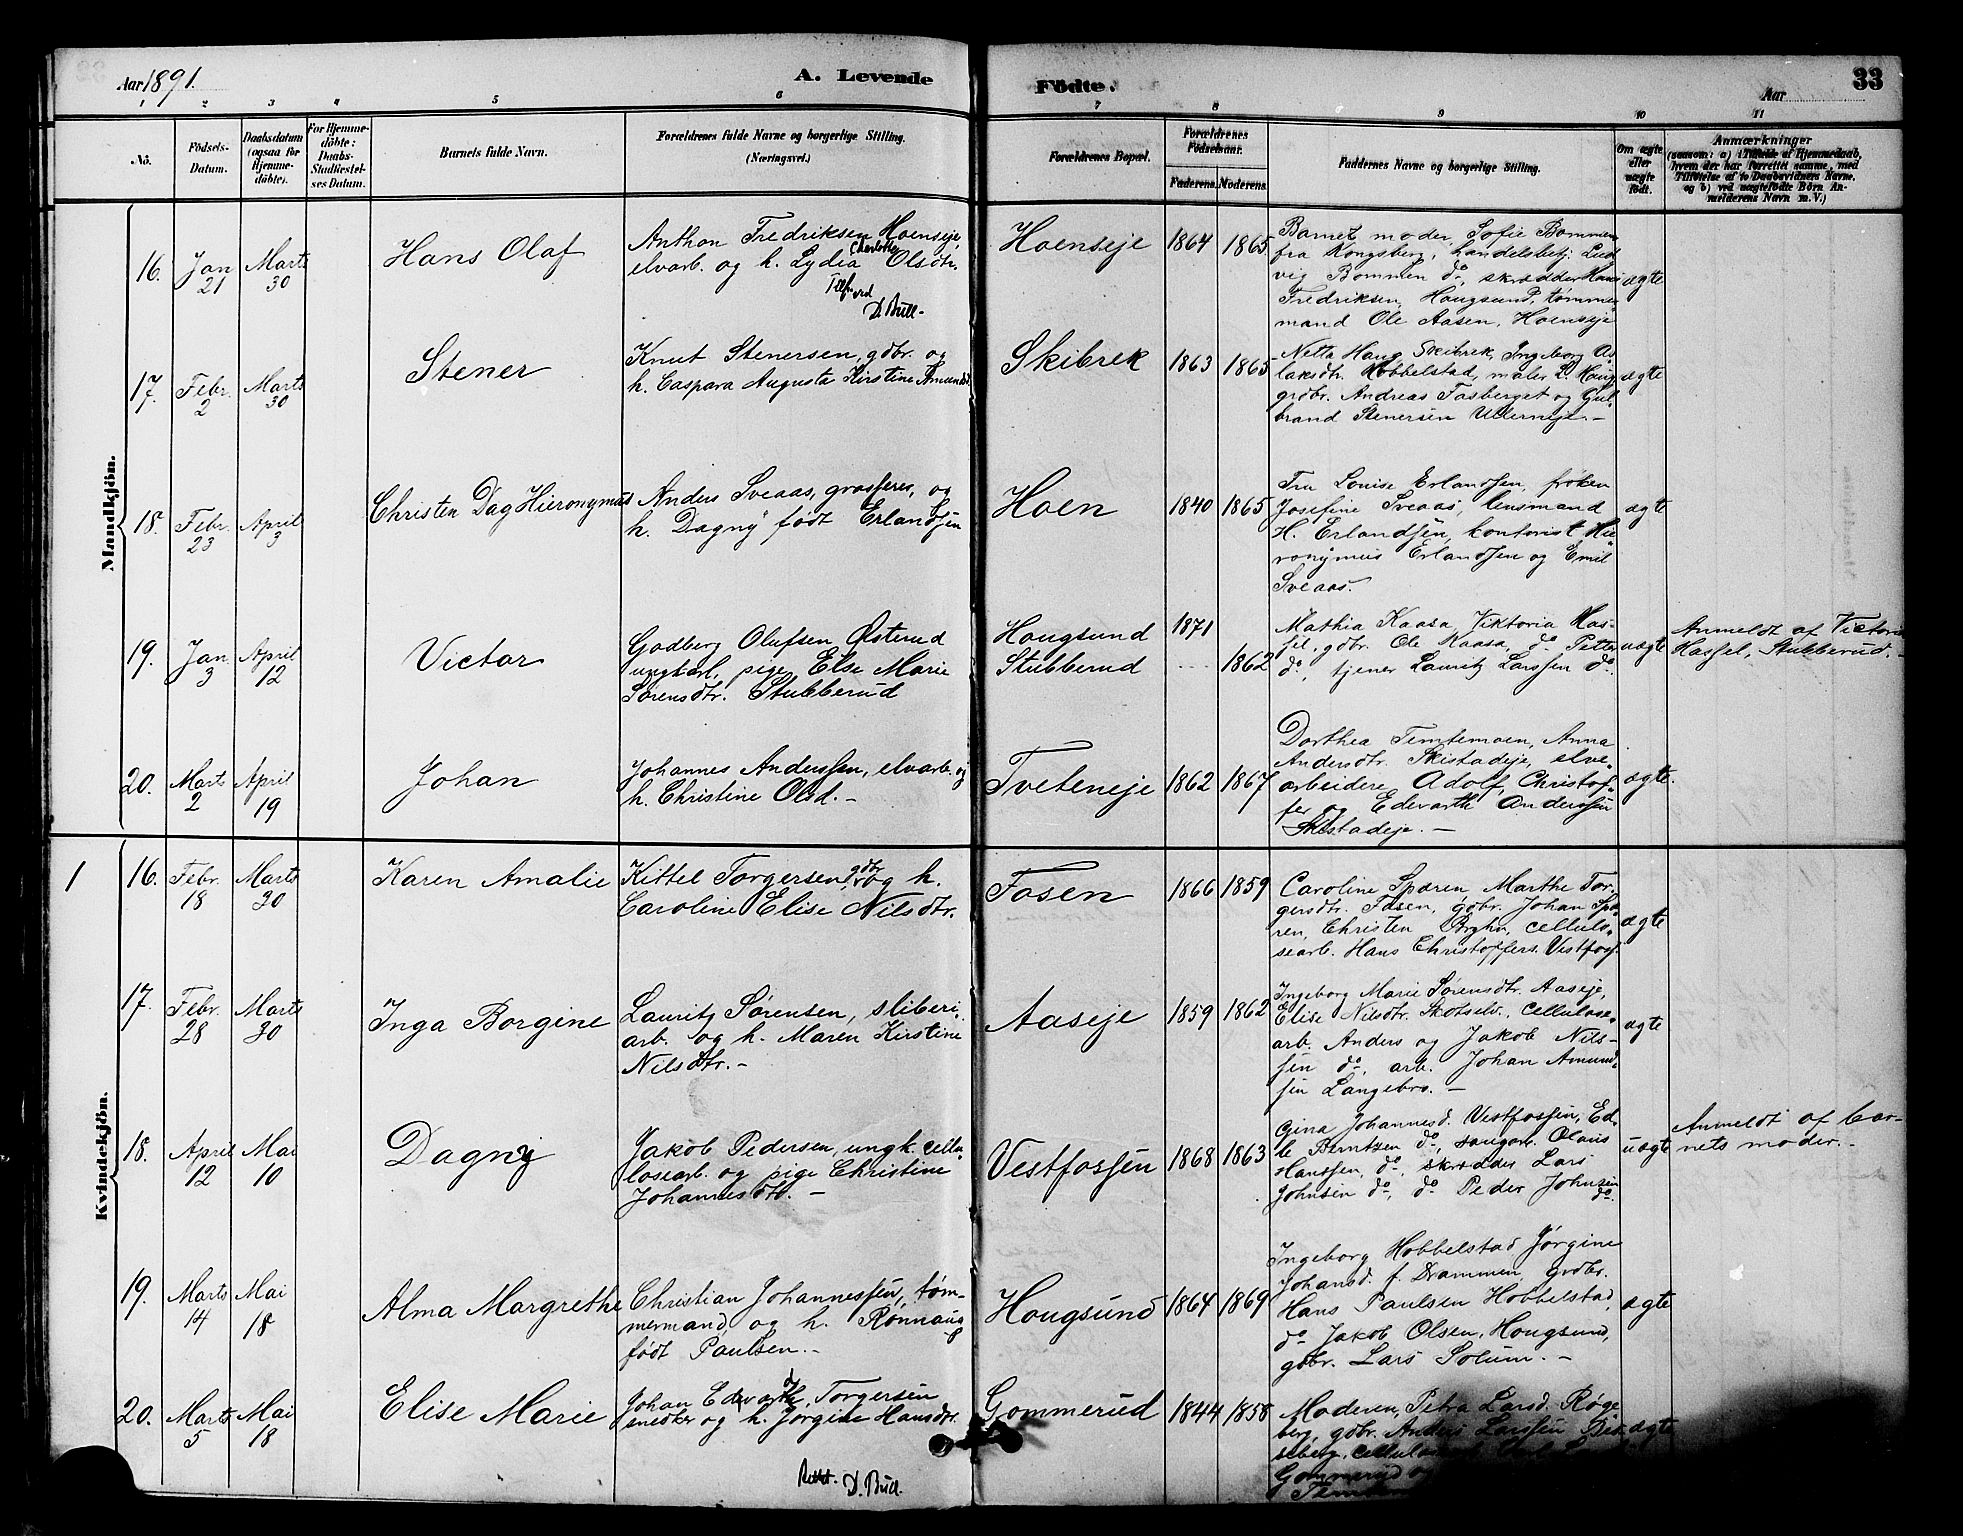 Aar 1891.
A. Levende
Födte.
Aar
33
1 2 3 4 5 6 7 8 9 10 11
No.
Födsels-Datum.
Daabsdatum (ogsaa for Hjemme-döbte).
For Hjemme-döbte: Daabs-Stadfæstel-ses Datum.
Barnets fulde Navn.
Forældrenes fulde Navne og borgerlige Stilling. (Næringsvei.)
Forældrenes Bopæl.
Forældrenes Födselsaar.
Faderens. Moderens.
Faddernes Navne og borgerlige Stilling.
Om ægte eller uægte födt.
Anmærkninger
(saasom: a) i Tilfælde af Hjemmedaab, hvem der har forrettet samme, med Tilföielse af to Daabsvidners Navne, og b) ved uægtefödte Börn Anmelderens Navn m. V.)
Mandkjön.
16. Jan 21
Marts 30
Hans Olaf
Anthon Fredriksen Hoenseje,
elvarb. og h. Lydia Charlotte Olsdtr.
Tilf. ved
D. Bull-
Hoenseje
1864 1865
Barnet moder, Sofie Bommen
fra Kongsberg, handelsbetj. Lud
vig Bommen do, skrædder Hans
Fredriksen, Hougsund, tømmer
mand Ole Aasen, Hoenseje
ægte
17. Febr. 2
Marts 30
Stener
Knut Stenersen, gdbr. og
h. Caspara Augusta Kirstine Amundsd.
Skibrek
1863 1865
Netta Haug Skibrek, Ingeborg As
laksdtr. Hobbelstad, maler P. Haug
grdbr. Andreas Fosberget og Gul
brand Stenersen Ullerneje.-
ægte
18. Febr. 23
April 3
Christen Dag Hieronymus
Anders Sveaas, grosserer, og
h. Dagny født Erlandsen
Hoen
1840 1865
Fru Louise Erlandsen, frøken
Josefine Sveaas, lensmand
H. Erlandsen, kontorist Hie
ronymus Erlandsen og Emil
Sveaas.
ægte
19. Jan 3
April 12
Victor
Godberg Olufsen Østerud
ungkarl, pige Else Marie
Sørensdtr. Stubberud
Hougsund
Stubberud
1871
1862
Mathia Kaasa, Viktoria Has-
sel, gdbr. Ole Kaasa, do Petter
do, tjener Lauritz Larssen do.
uægte
Anmeldt af Victoria
Hassel, Stubberud.-
20. Marts 2
April 19
Johan
Johannes Anderssen, elvarb. og
h. Christine Olsd.-
Tveteneje
1862 1867
Dorthea Temtemoen, Anna
Andersdtr. Skistadeje, elve
arbeidere Adolf, Christof
fer og Edvarth Anderssen
Skistadeje.-
ægte.
Kvindekjön.
1
16. Febr. 18
Marts 30
Karen Amalie
Kittel Torgersen, gdbr. og h.
Caroline Elise Nilsdtr.
Fosen
1866 1859
Caroline Spæren Marthe Tor
gersdtr. Fosen, gdbr. Johan Spæ
ren, Christen Borghn, cellulo
searb. Hans Christoffers. Vestfos.
ægte
17. Febr. 28
Marts 30
Inga Borgine
Lauritz Sørensen, sliberi
arb. og h. Maren Kirstine
Nilsdtr.-
Aaseje
1859 1862
Ingeborg Marie Sørensdtr. Aaseje,
Elise Nilsdtr. Skotselv., cellulose
arb. Anders og Jakob Nils-
sen do, arb. Johan Amund
sen Langebro.-
ægte
18. April 12
Mai 10
Dagny
Jakob Pedersen, ungk. cellu
losearb. og pige Christine
Johannesdtr.-
Vestfossen
1868 1863
Gina Johannesd. Vestfossen, Ed
le Berntzen do, saugarb. Olaus
Hanssen, do, skrædder Lars
Johnsen do, do Peder Johnsen
do.
uægte
Anmeldt af bar-
nets moder.-
19. Marts 14
Mai 18
Alma Margrethe
Christian Johannessen, tøm-
mermand og h. Rønnaug
født Paulsen.-
Hougsund
1864 1869
Ingeborg Hobbelstad Jørgine
Johansd. f. Drammen, grdbr.
Hans Paulsen Hobbelstad,
do Jakob Olsen, Hougsund,
gdbr. Lars Solum.-
ægte
20. Marts 5
Mai 18
Elise Marie
Johan Edvarth Torgersen
snedker og h. Jørgine Hansdtr.
Rettet. D. Bull.
Gommerud
1844 1858
Moderen, Petra Larsd. Røge
berg, gdbr. Anders Larssen
seberg,
Gommerud og
ægte